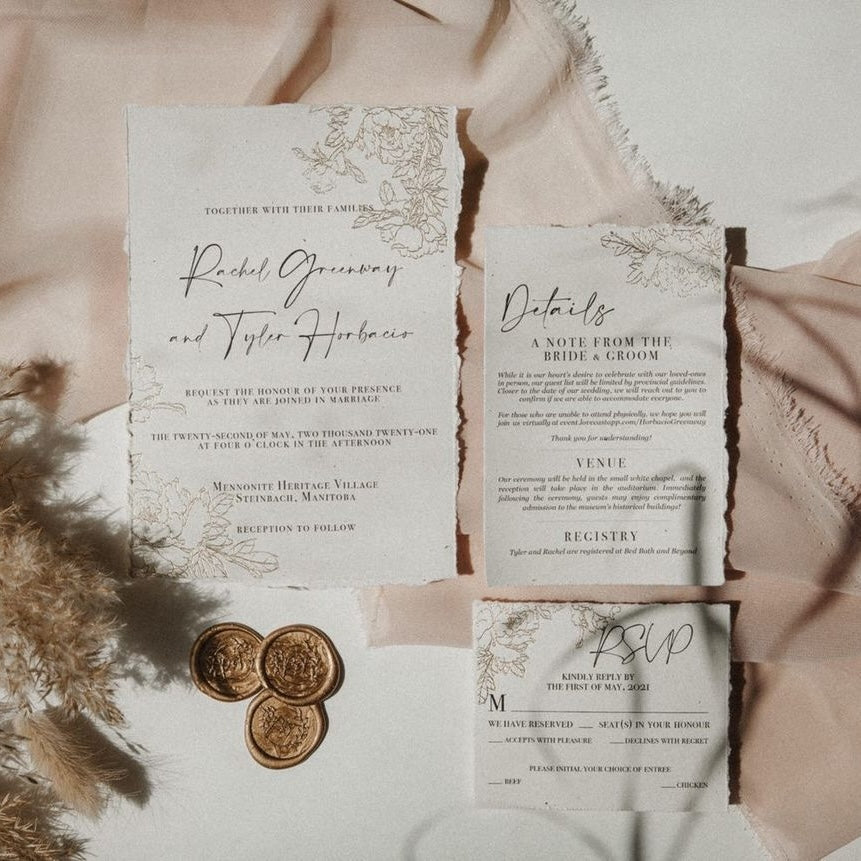 TOGETHER WITH THEIR FAMILIES
Rachel Greenway
and Tyler Horbacio
REQUEST THE HONOUR OF YOUR PRESENCE
AS THEY ARE JOINED IN MARRIAGE
THE TWENTY-SECOND OF MAY, TWO THOUSAND TWENTY-ONE
AT FOUR O'CLOCK IN THE AFTERNOON
MENNONITE HERITAGE VILLAGE
STEINBACH, MANITOBA
RECEPTION TO FOLLOW
Details
A NOTE FROM THE
BRIDE & GROOM
While it is our heart's desire to celebrate with our loved-ones
in person, our guest list will be limited by provincial guidelines.
Closer to the date of our wedding, we will reach out to you to
confirm if we are able to accommodate everyone.
For those who are unable to attend physically, we hope you will
join us virtually at event.lovecastapp.com/HorbacioGreenway
Thank you for understanding!
VENUE
Our ceremony will be held in the small white chapel, and the
reception will take place in the auditorium. Immediately
following the ceremony, guests may enjoy complimentary
admission to the museum's historical buildings!
REGISTRY
Tyler and Rachel are registered at Bed Bath and Beyond
RSVP
KINDLY REPLY BY
THE FIRST OF MAY, 2021
M
WE HAVE RESERVED ___ SEAT(S) IN YOUR HONOUR
___ ACCEPTS WITH PLEASURE ___ DECLINES WITH REGRET
PLEASE INITIAL YOUR CHOICE OF ENTREE
___ BEEF ___ CHICKEN